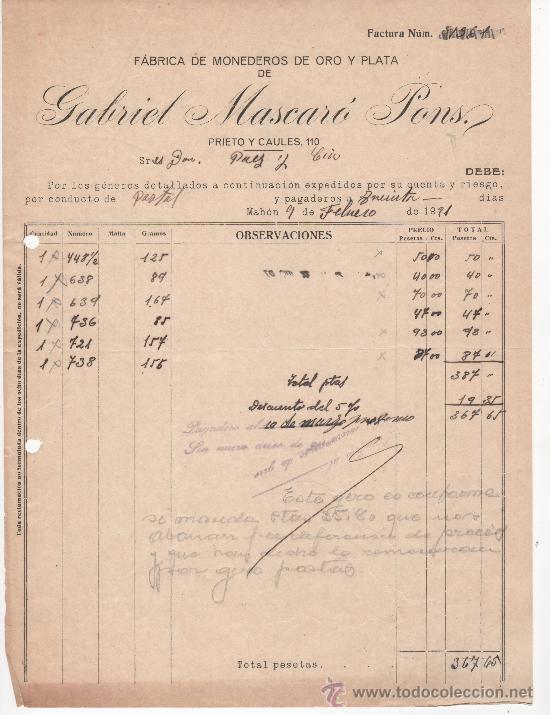 Factura Núm.
FÁBRICA DE MONEDEROS DE ORO Y PLATA
DE
Gabriel Mascaró Pons.
PRIETO Y CAULES, 110
Sres Don. Paez y Cia
DEBE:
Por los géneros detallados a continuación expedidos por su cuenta y riesgo,
por conducto de Postal y pagaderos a días
Mahón 9 de Febrero de 19
Cantidad Número Malla Gramos OBSERVACIONES PRECIO Pesetas Cts. TOTAL Pesetas Cts.
1 x 448/2 125 50 00 50 "
1 x 638 89 40 00 40 "
1 x 639 167 x 70 00 70 "
1 x 736 85 47 00 47 "
1 x 721 157 x 93 00 93 "
1 x 738 155 87 00 87
Total ptas 387 "
Descuento del 5% 19 35
367 65
Pagadero al 10 de marzo proximo
Sin nuevo aviso de
Este giro es conforme
se manda ptas que nos
abonan por diferencia de precios
y que han
por giro postal
Total pesetas. 367 65
Toda reclamación no formulada dentro de los ocho días de la expedición, no será válida.
www.todocoleccion.net